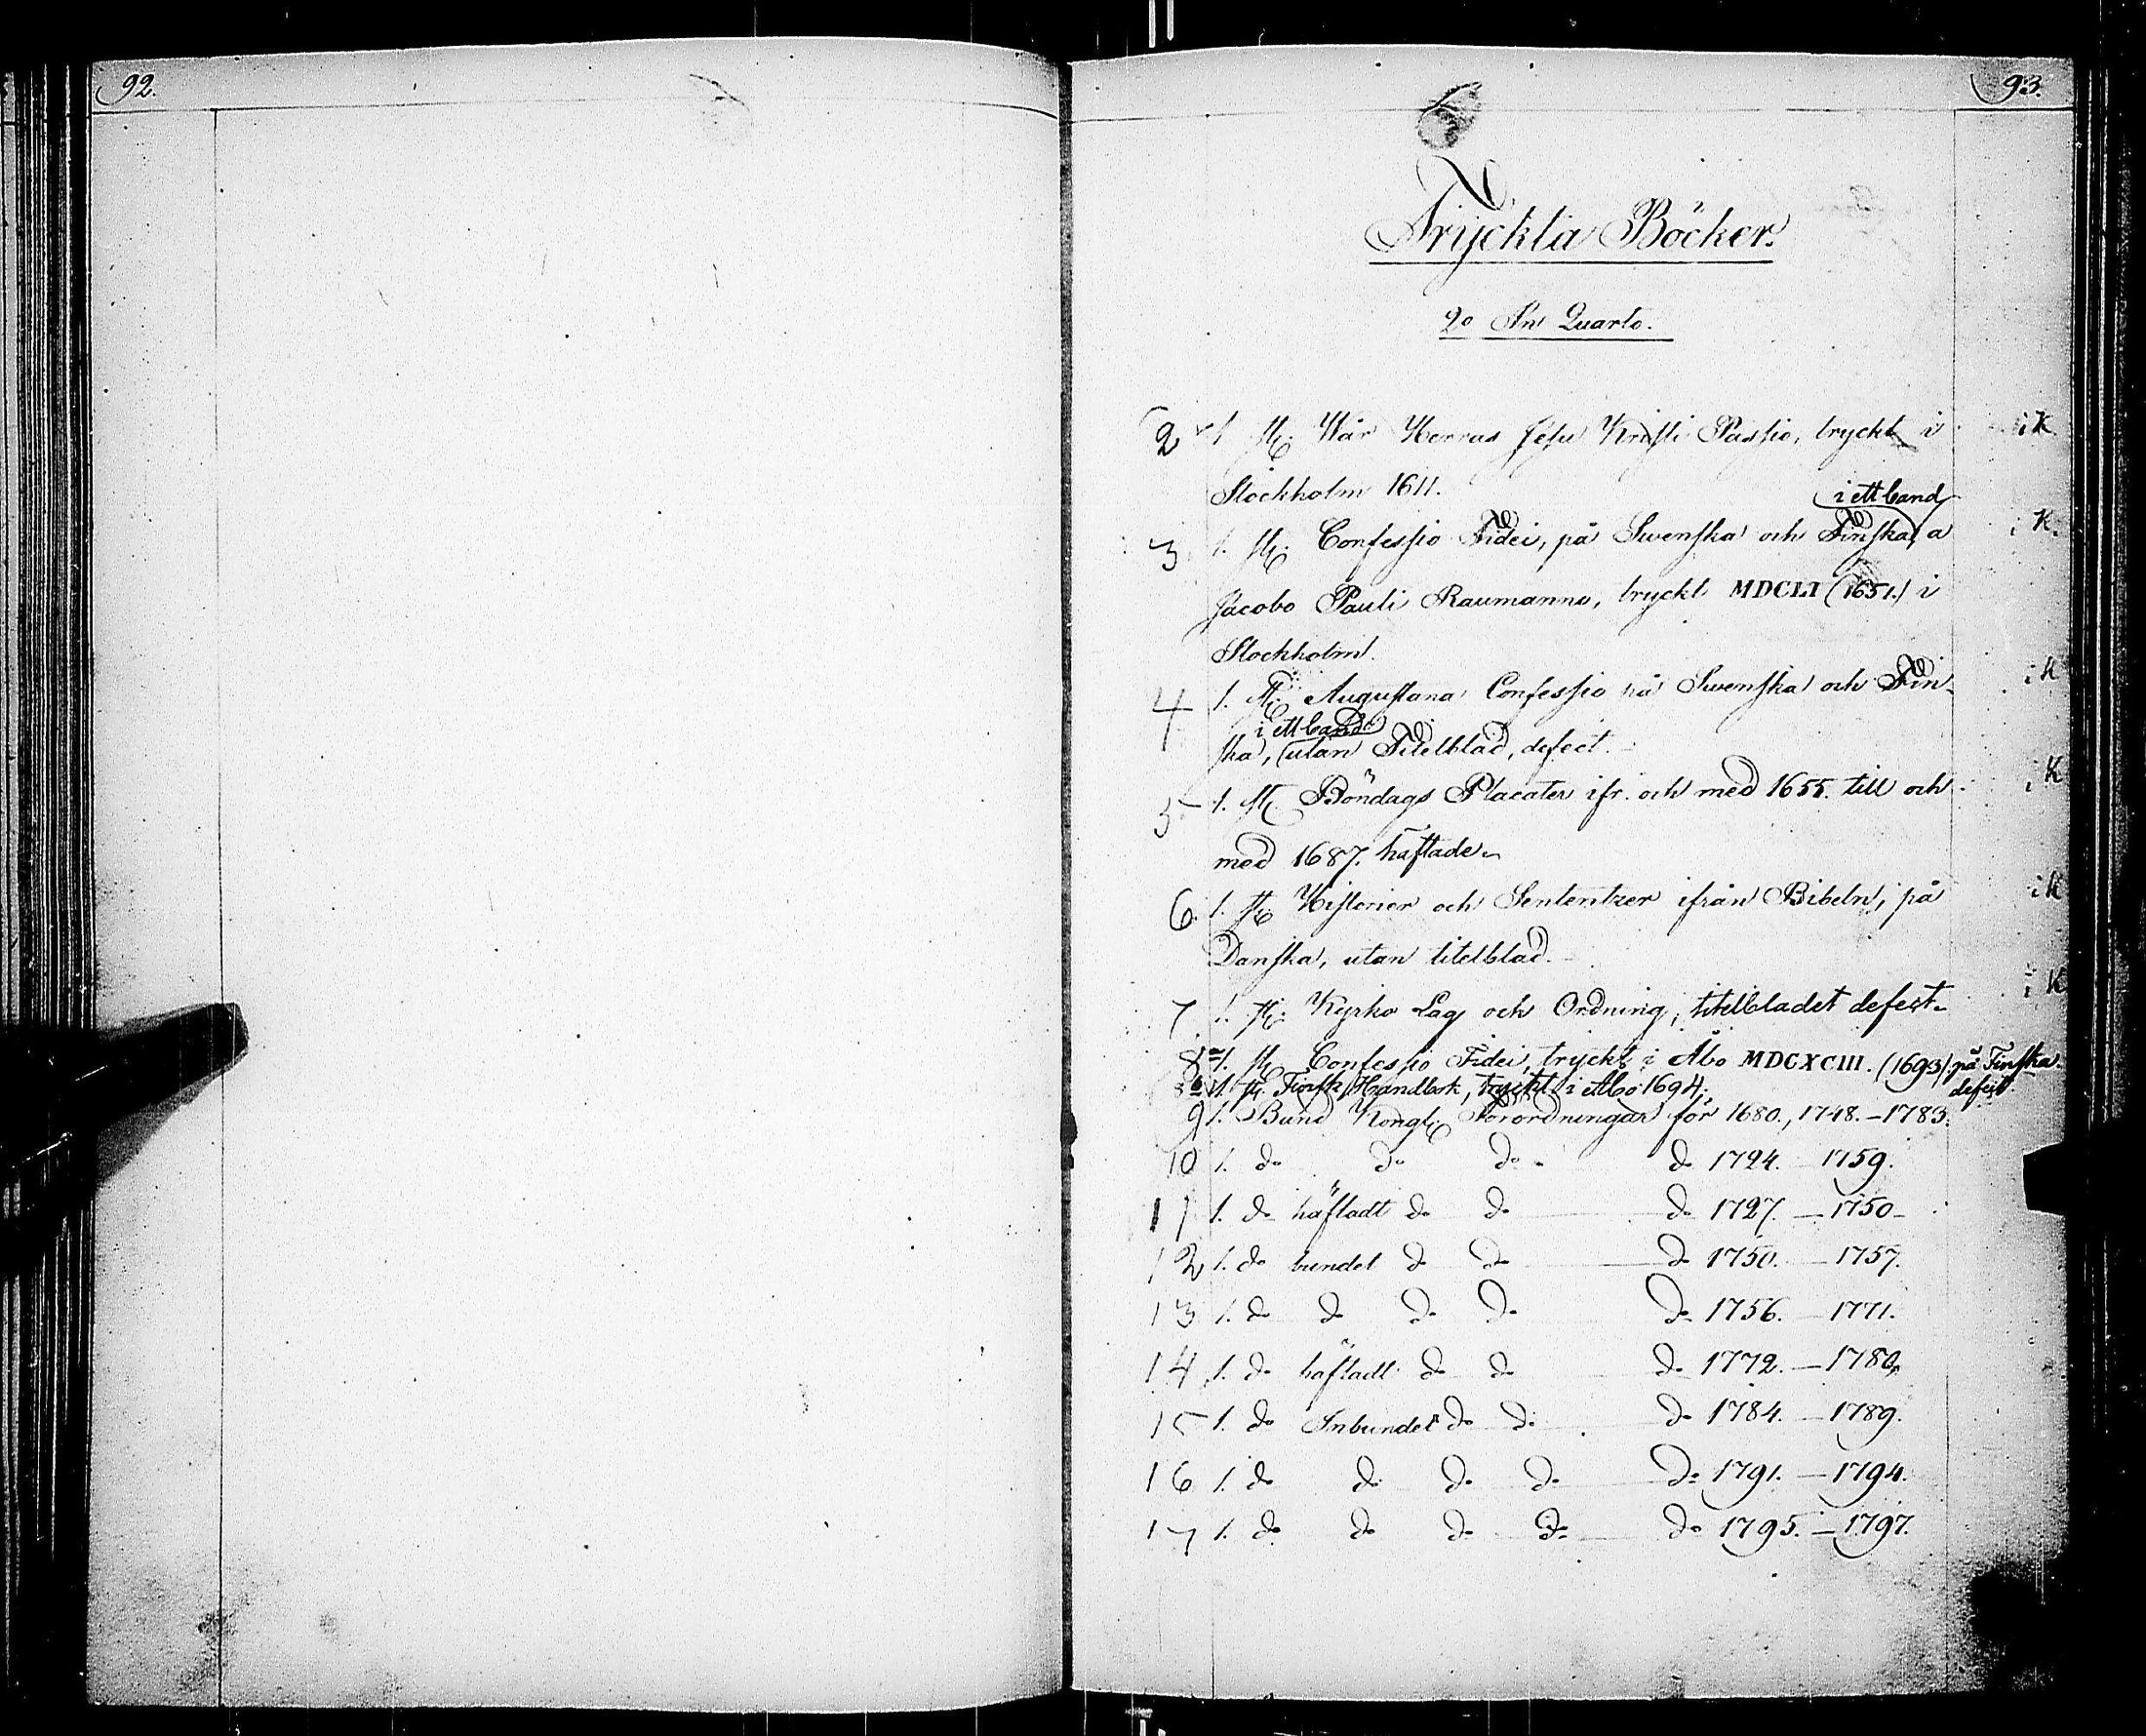 92.
93.
Tryckta Böcker.
2o In Quarto.
2 1. st. Wår Herras Jesu Kristi Passio, tryckt i i K
Stockholm 1611.
i ett band
3 1. st. Confessio Fidei, på Swenska och Finska, a i K.
Jacobo Pauli Raumanno, tryckt MDCLI (1651.) i
Stockholm.
4 1. st. Augustana Confessio på Swenska och Fin- i K
i ett band
ska, utan Titelblad, defect.
5 1. st. Böndags Placater ifr. och med 1655. till och i K
med 1687. häftade.
6. 1. st. Historier och Sententzer ifrån Bibeln, på i K
Danska, utan titelblad.
7 1. st. Kyrko Lag och Ordning, titelbladet defect. i K
8a 1. st. Confessio Fidei, tryckt i Åbo MDCXCIII. (1693) på Finska.
defect
8b 1. st. Finsk Handbok, tryckt i Åbo 1694.
9 1. Band Kongl. Förordningar för 1680., 1748. - 1783.
10 1. do do do do 1724. - 1759.
11 1. do häftadt do do do 1727. - 1750
12 1. do bundet do do do 1750. - 1757.
13 1. do do do do do 1756. - 1771.
14 1. do häftadt do do do 1772. - 1780.
15 1. do Inbundet do do do 1784. - 1789.
16 1. do do do do do 1791. - 1794.
17 1. do do do do do 1795. - 1797.